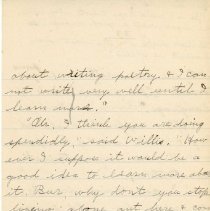 about writing poetry & I can
not write very well until I
learn more."
"Oh, I think you are doing
splendidly," said Willie. "How
ever I suppose it would be a
good idea to learn more about
it. But, why don't you stop
living alone out here & come